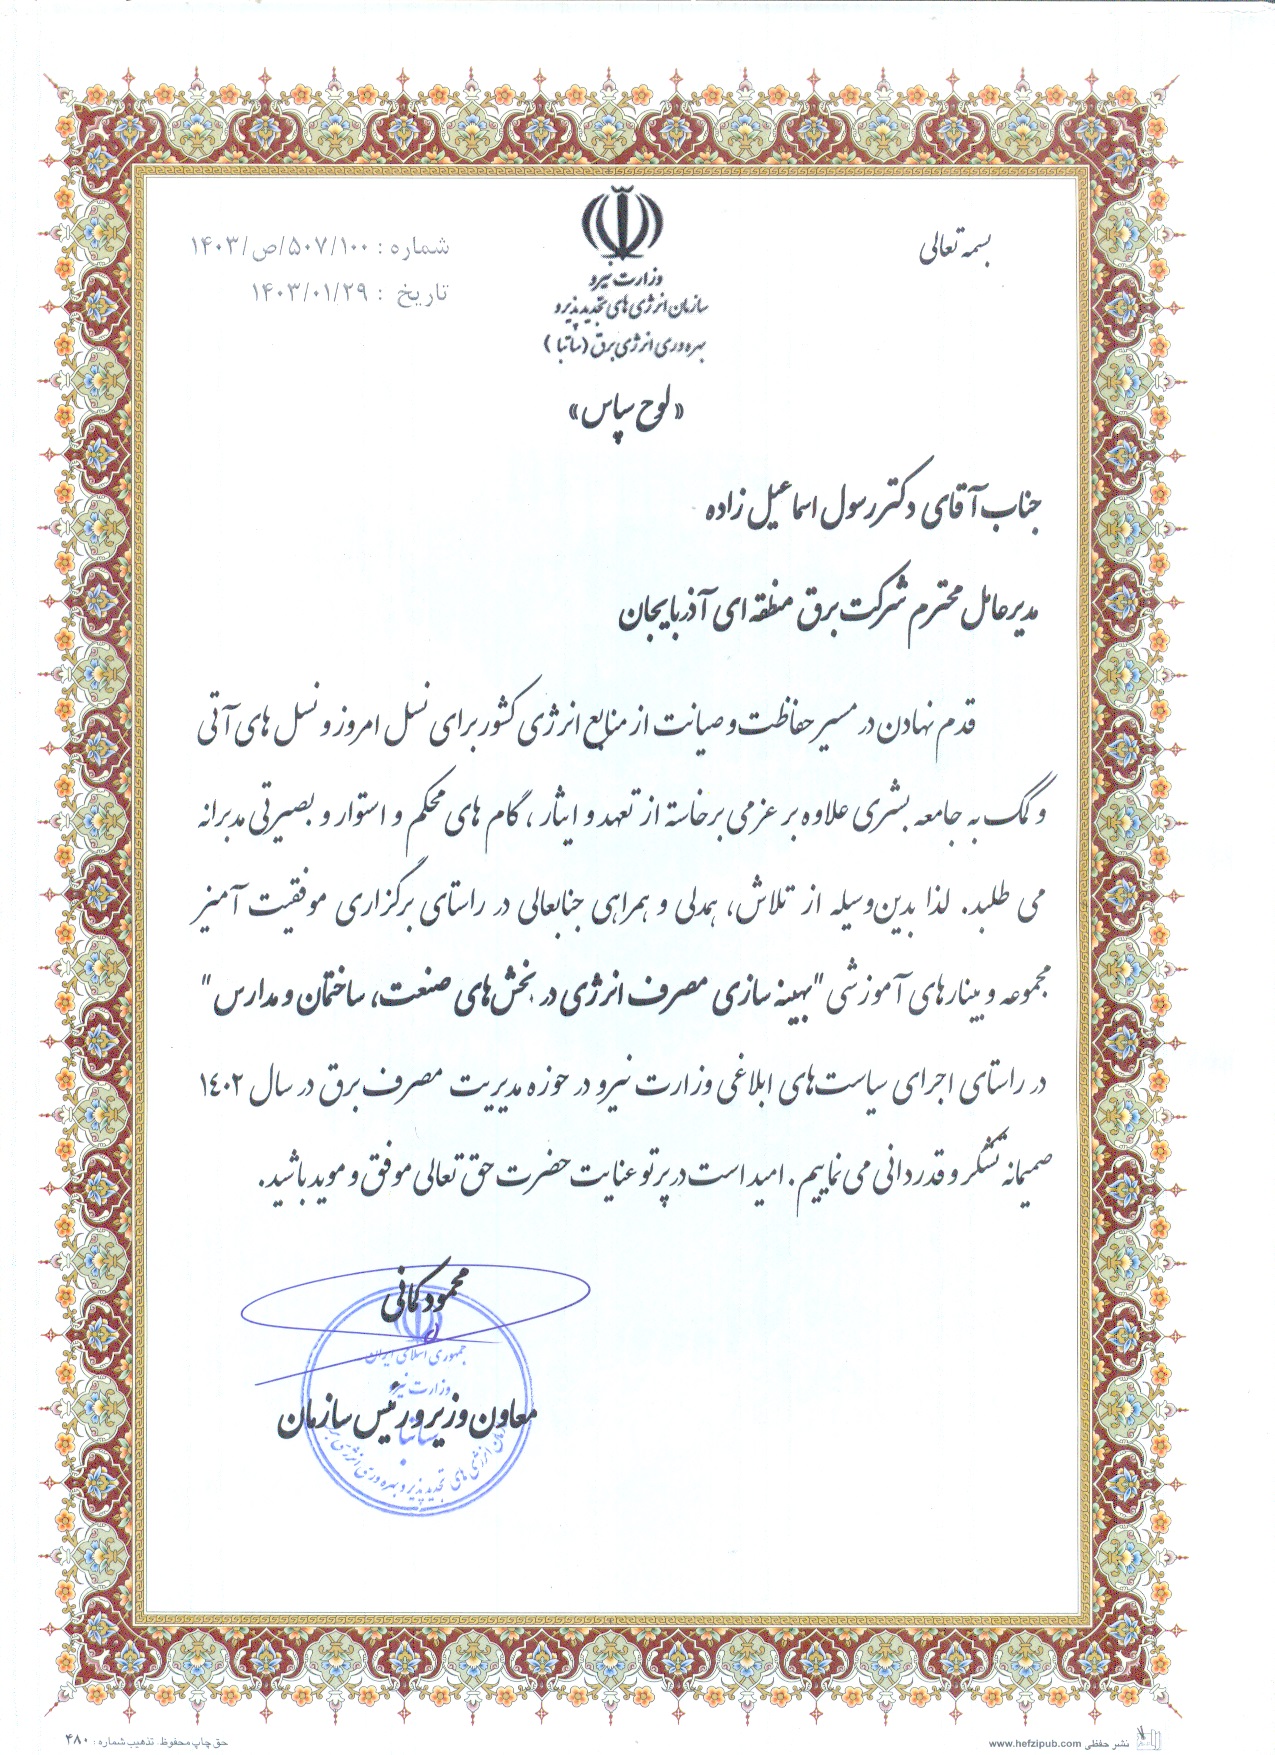 بسمه تعالی
وزارت نیرو
سازمان انرژی های تجدیدپذیر و
بهره وری انرژی برق (ساتبا)
شماره : ۱۴۰۳/ص/۵۰۷/۱۰۰
تاریخ : ۱۴۰۳/۰۱/۲۹
«لوح سپاس»
جناب آقای دکتر رسول اسماعیل زاده
مدیرعامل محترم شرکت برق منطقه ای آذربایجان
قدم نهادن در مسیر حفاظت و صیانت از منابع انرژی کشور برای نسل امروز و نسل های آتی
و کمک به جامعه بشری علاوه بر عزمی برخاسته از تعهد و ایثار ، گام های محکم و استوار و بصیرتی مدبرانه
می طلبد. لذا بدین وسیله از تلاش، همدلی و همراهی جنابعالی در راستای برگزاری موفقیت آمیز
مجموعه وبینارهای آموزشی "بهینه سازی مصرف انرژی در بخش های صنعت، ساختمان و مدارس"
در راستای اجرای سیاست های ابلاغی وزارت نیرو در حوزه مدیریت مصرف برق در سال ۱٤۰۲
صمیمانه تشکر و قدردانی می نماییم. امید است در پرتو عنایت حضرت حق تعالی موفق و موید باشید.
محمود کمانی
معاون وزیر و رئیس سازمان
جمهوری اسلامی ایران
وزارت نیرو
ساتبا
سازمان انرژی های تجدیدپذیر و بهره وری انرژی برق
حق چاپ محفوظ. تذهیب شماره : ۴۸۰
نشر حفظی www.hefzipub.com